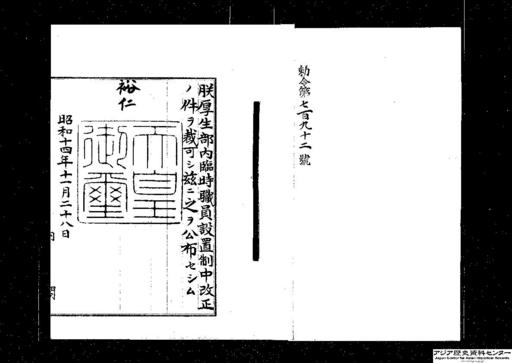 勅令第七百九十二號
朕厚生部內臨時職員設置制中改正
ノ件ヲ裁可シ茲ニ之ヲ公布セシム
裕仁
天皇御璽
昭和十四年十一月二十八日
内閣
アジア歴史資料センター
Japan Center for Asian Historical Records